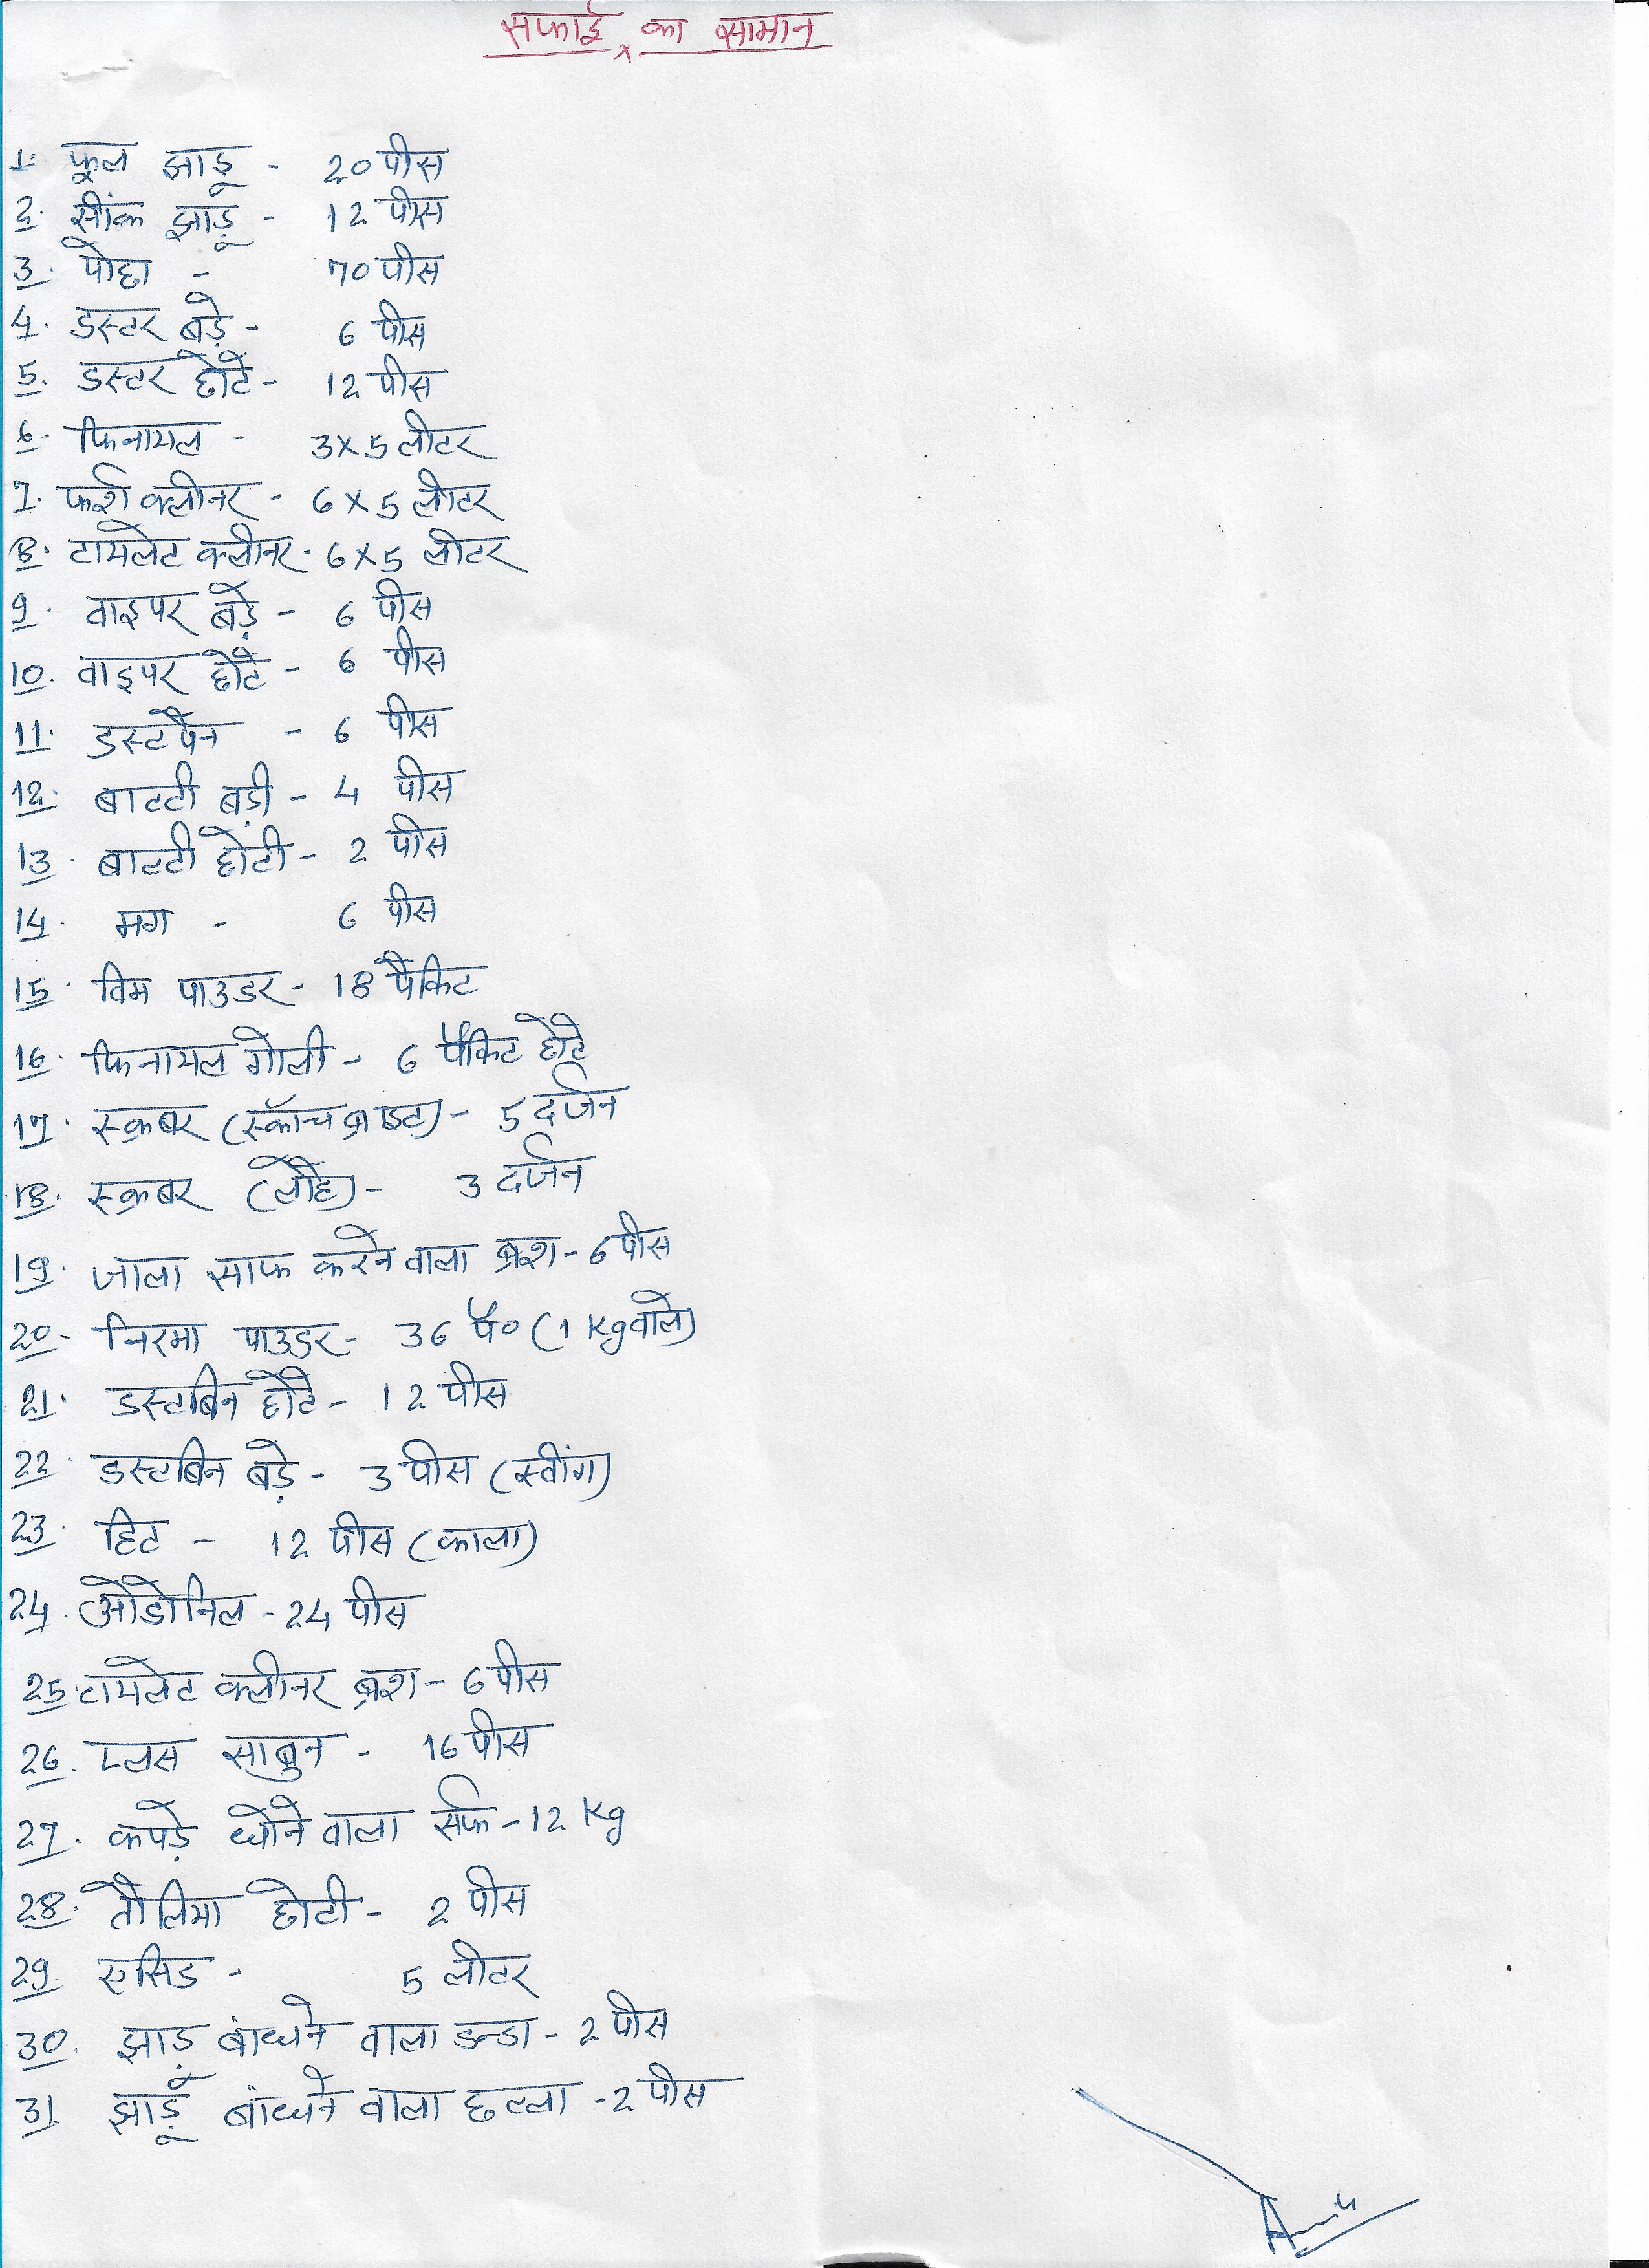 सफाई का सामान
1. फूल झाडू - 20 पीस
2. सींक झाड़ू - 12 पीस
3. पोछा - 70 पीस
4. डस्टर बड़े - 6 पीस
5. डस्टर छोटे - 12 पीस
6. फिनायल - 3x5 लीटर
7. फर्श क्लीनर - 6x5 लीटर
8. टायलेट क्लीनर - 6x5 लीटर
9. वाइपर बड़े - 6 पीस
10. वाइपर छोटे - 6 पीस
11. डस्टपैन - 6 पीस
12. बाल्टी बड़ी - 4 पीस
13. बाल्टी छोटी - 2 पीस
14. मग - 6 पीस
15. विम पाउडर - 18 पैकिट
16. फिनायल गोली - 6 पैकिट छोटे
17. स्क्रबर (स्कॉच ब्राइट) - 5 दर्जन
18. स्क्रबर (लोहे) - 3 दर्जन
19. जाला साफ करने वाला ब्रश - 6 पीस
20. निरमा पाउडर - 36 पै० (1 Kg वाले)
21. डस्टबिन छोटे - 12 पीस
22. डस्टबिन बड़े - 3 पीस (स्वींग)
23. हिट - 12 पीस (काला)
24. ओडोनिल - 24 पीस
25. टायलेट क्लीनर ब्रश - 6 पीस
26. प्लस साबुन - 16 पीस
27. कपड़े धोने वाला सर्फ - 12 Kg
28. तौलिया छोटी - 2 पीस
29. एसिड - 5 लीटर
30. झाड़ू बांधने वाला डन्डा - 2 पीस
31. झाड़ू बांधने वाला छल्ला - 2 पीस